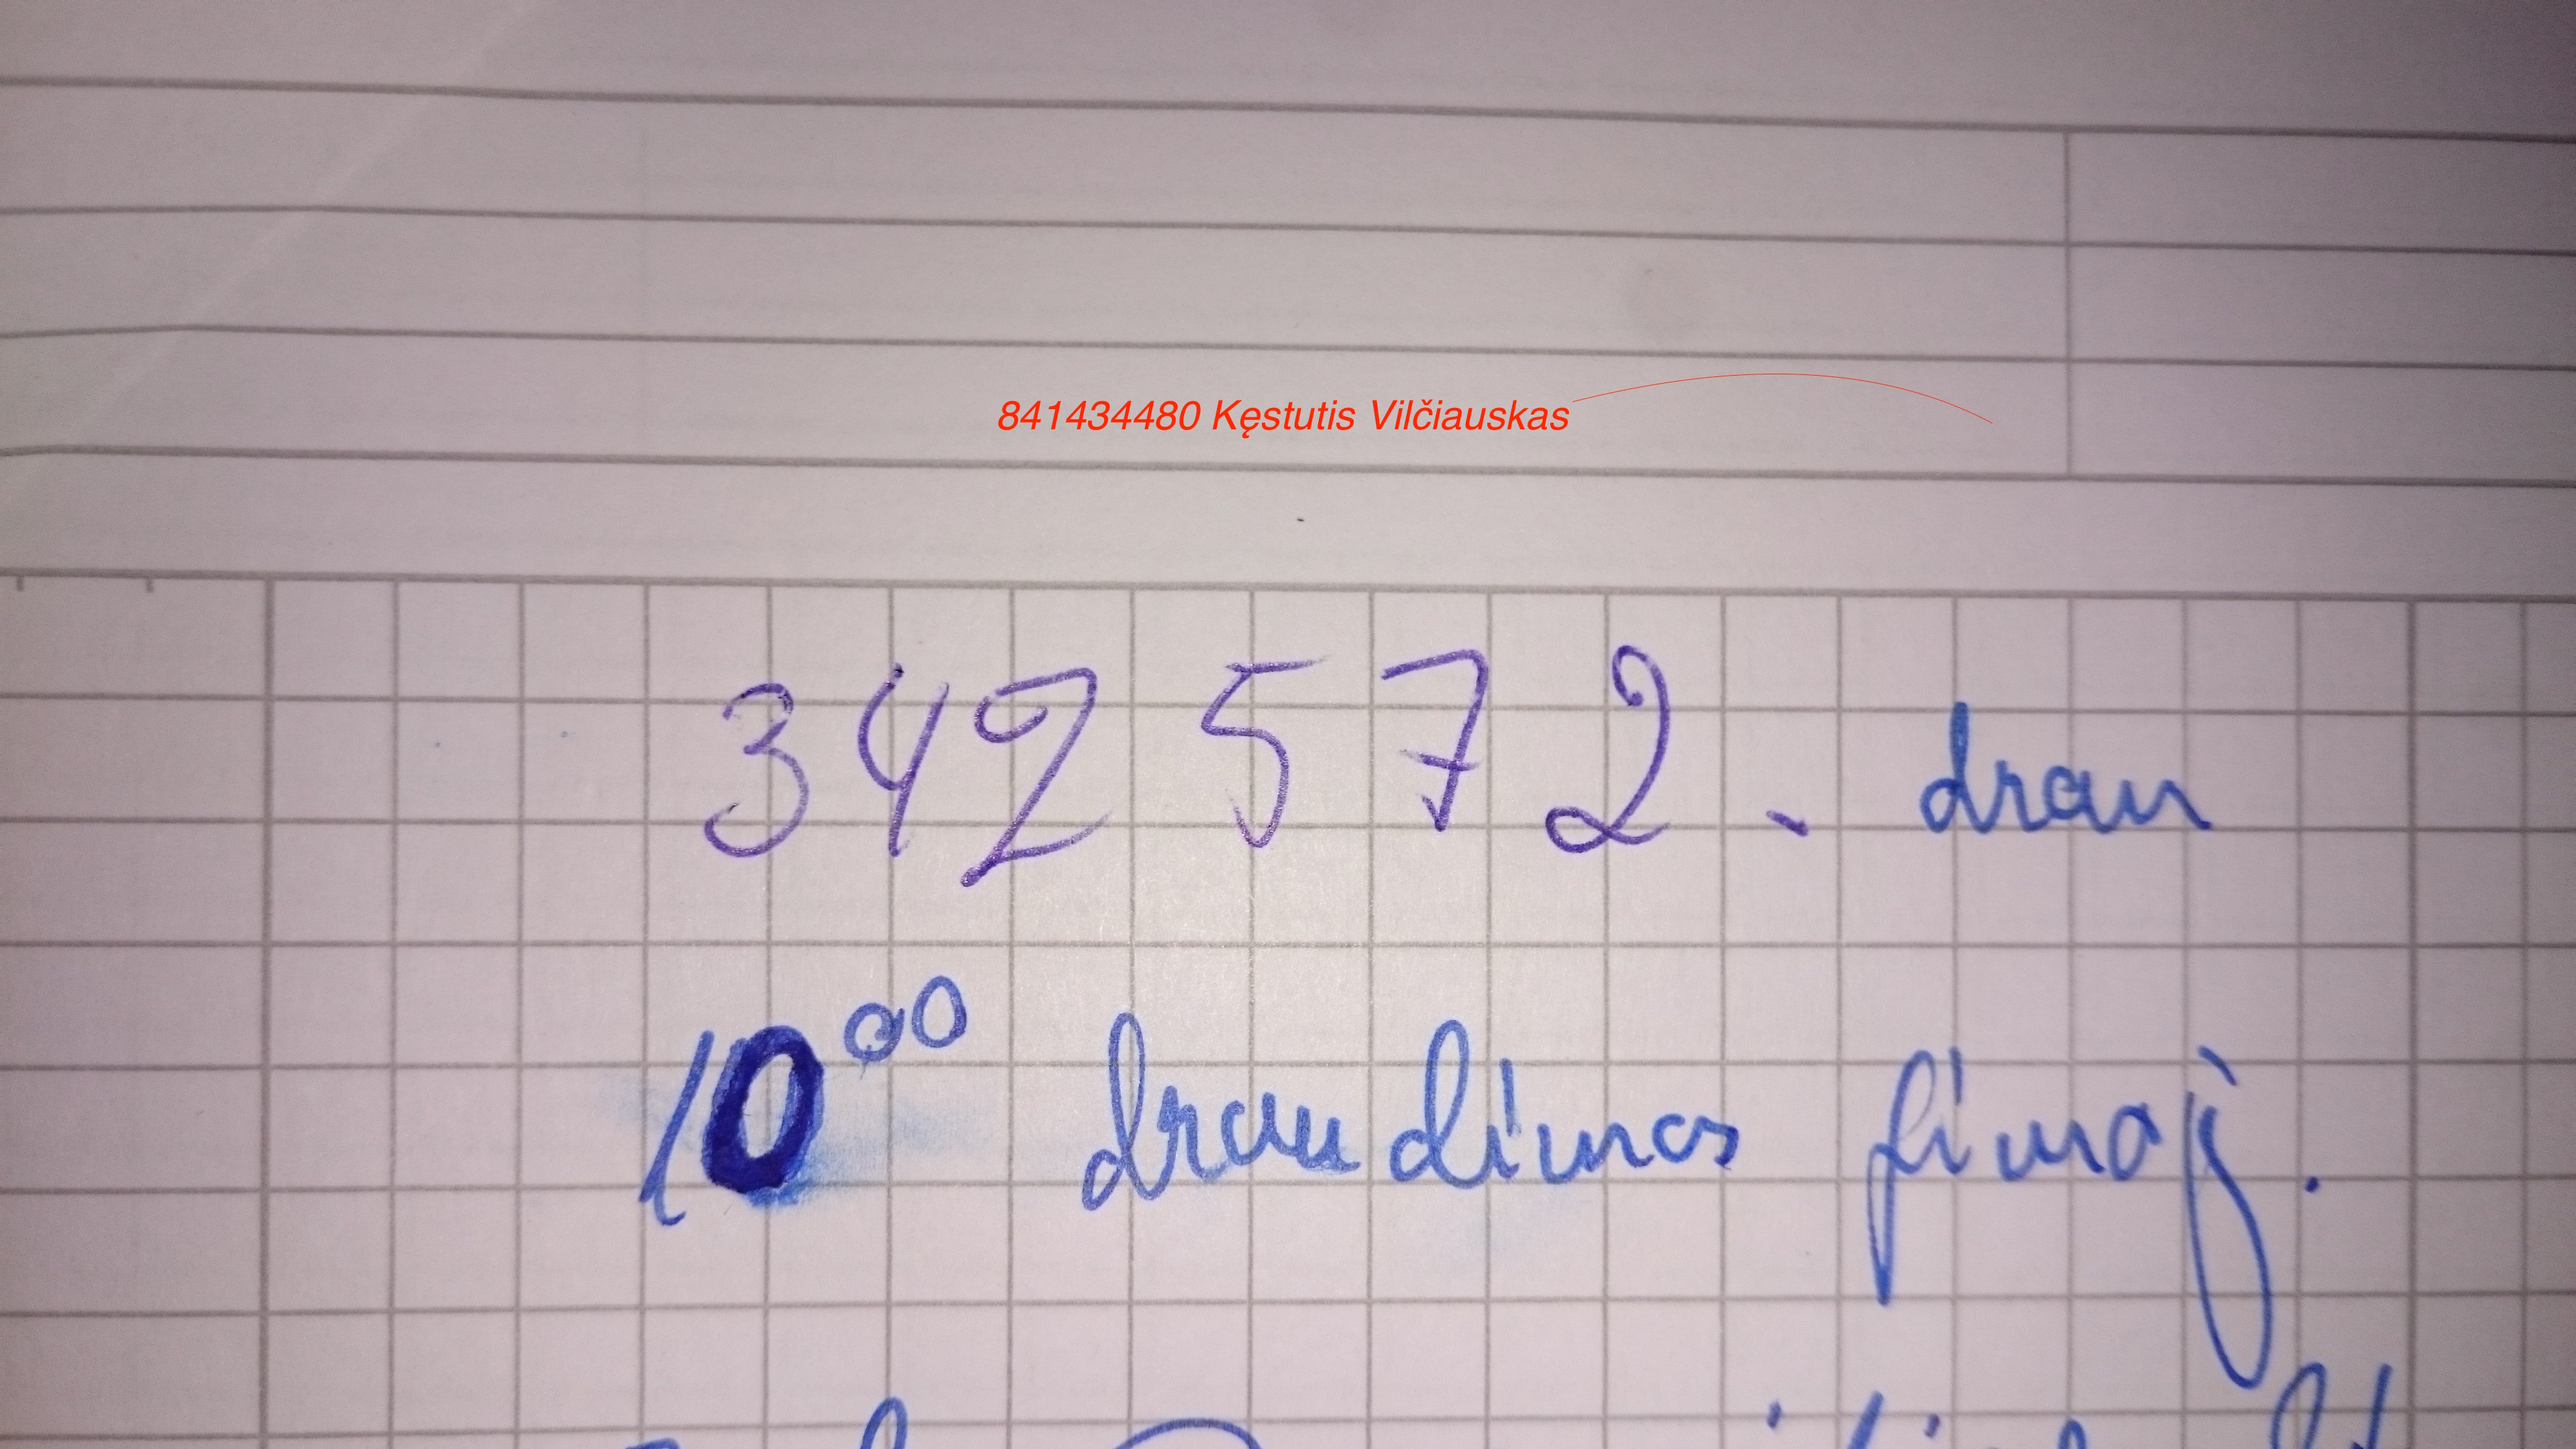 841434480 Kęstutis Vilčiauskas
342 572. drau
10⁰⁰ draudimas